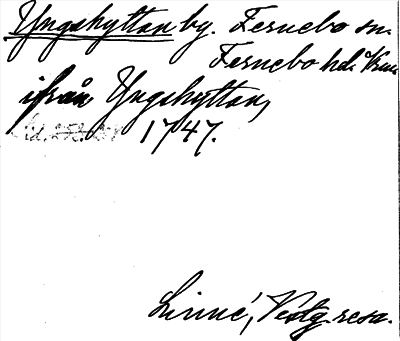 Yngshyttan by. Fernebo sn.
Fernebo hd. Vrm.
ifrån Yngshyttan,
1747.
Linné, Vestg. resa.